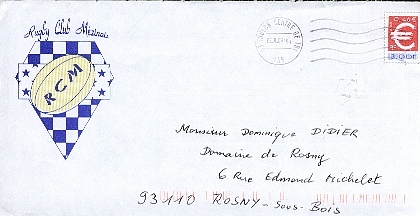 Rugby Club Mézinais
RCM
0,46€
3,00F
Monsieur Dominique DIDIER
Domaine de Rosny
6 Rue Edmond Michelet
93110 ROSNY-sous-Bois